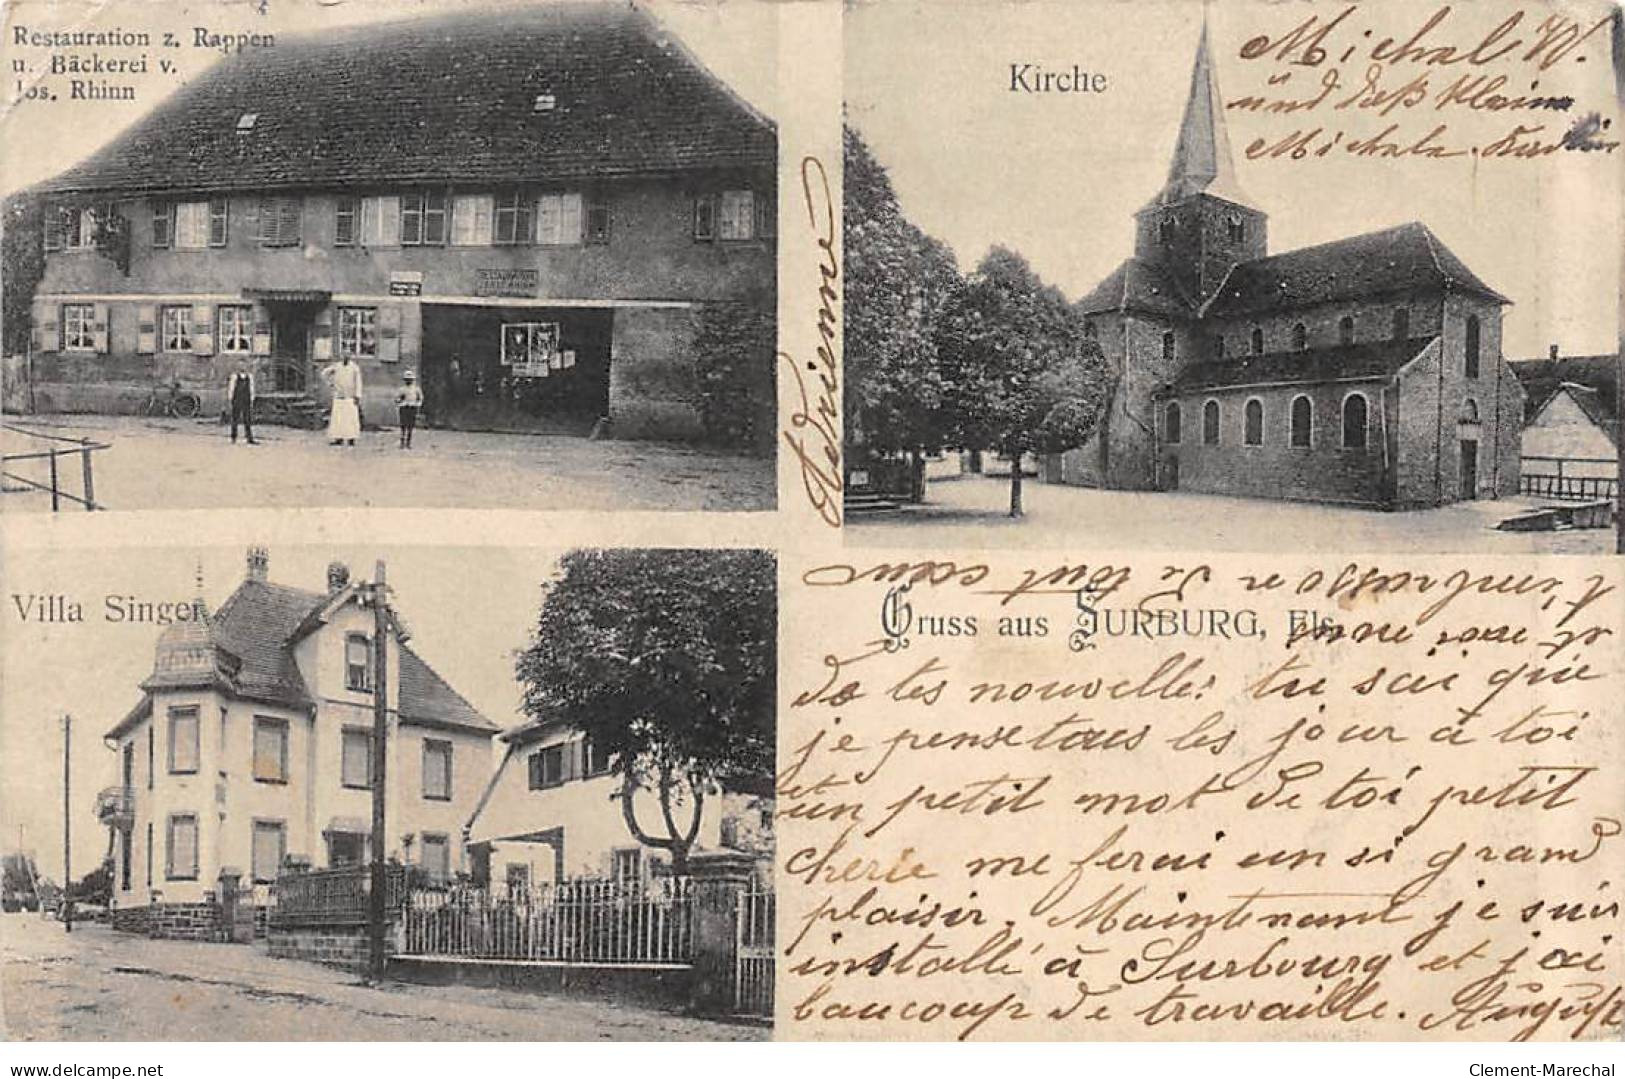 Restauration z. Rappen
u. Bäckerei v.
Jos. Rhinn
Kirche
Michal W.
und daß kleine
Michala
RESTAURATION
Adrienne
Villa Singer
Gruss aus SURBURG, Els.
de tes nouvelle: tu sai que
je pense tous les jour à toi
et
un petit mot de toi petit
cherie me ferai un si grand
plaisir. Maintenant je suir
installé à Surbourg et j ai
beaucoup de travaille. August
delcampe.net
Clement-Marechal